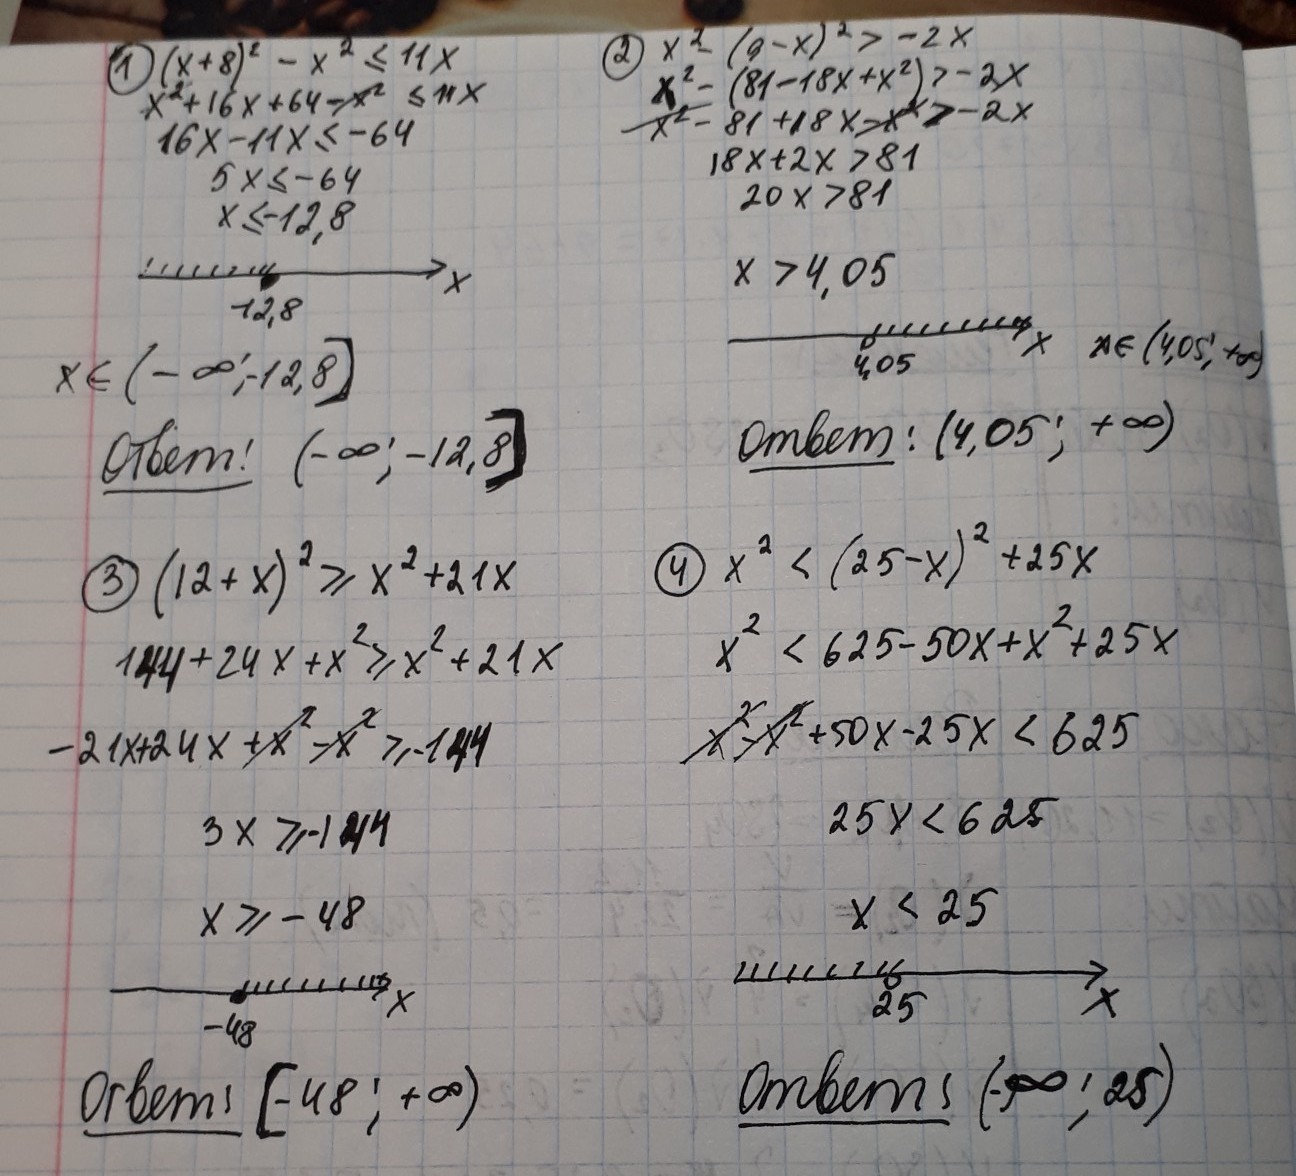 1) (x+8)² - x² ≤ 11x
x² + 16x + 64 - x² ≤ 11x
16x - 11x ≤ -64
5x ≤ -64
x ≤ -12,8
x
-12,8
x ∈ (-∞; -12,8]
Ответ: (-∞; -12,8]
2) x² - (9-x)² > -2x
x² - (81-18x+x²) > -2x
x² - 81 + 18x - x² > -2x
18x+2x > 81
20x > 81
x > 4,05
4,05 x
x ∈ (4,05; +∞)
Ответ: (4,05; +∞)
3) (12+x)² ≥ x² + 21x
144 + 24x + x² ≥ x² + 21x
-21x + 24x + x² - x² ≥ -144
3x ≥ -144
x ≥ -48
x
-48
Ответ: [-48; +∞)
4) x² < (25-x)² + 25x
x² < 625 - 50x + x² + 25x
x² - x² + 50x - 25x < 625
25x < 625
x < 25
25 x
Ответ: (-∞; 25)